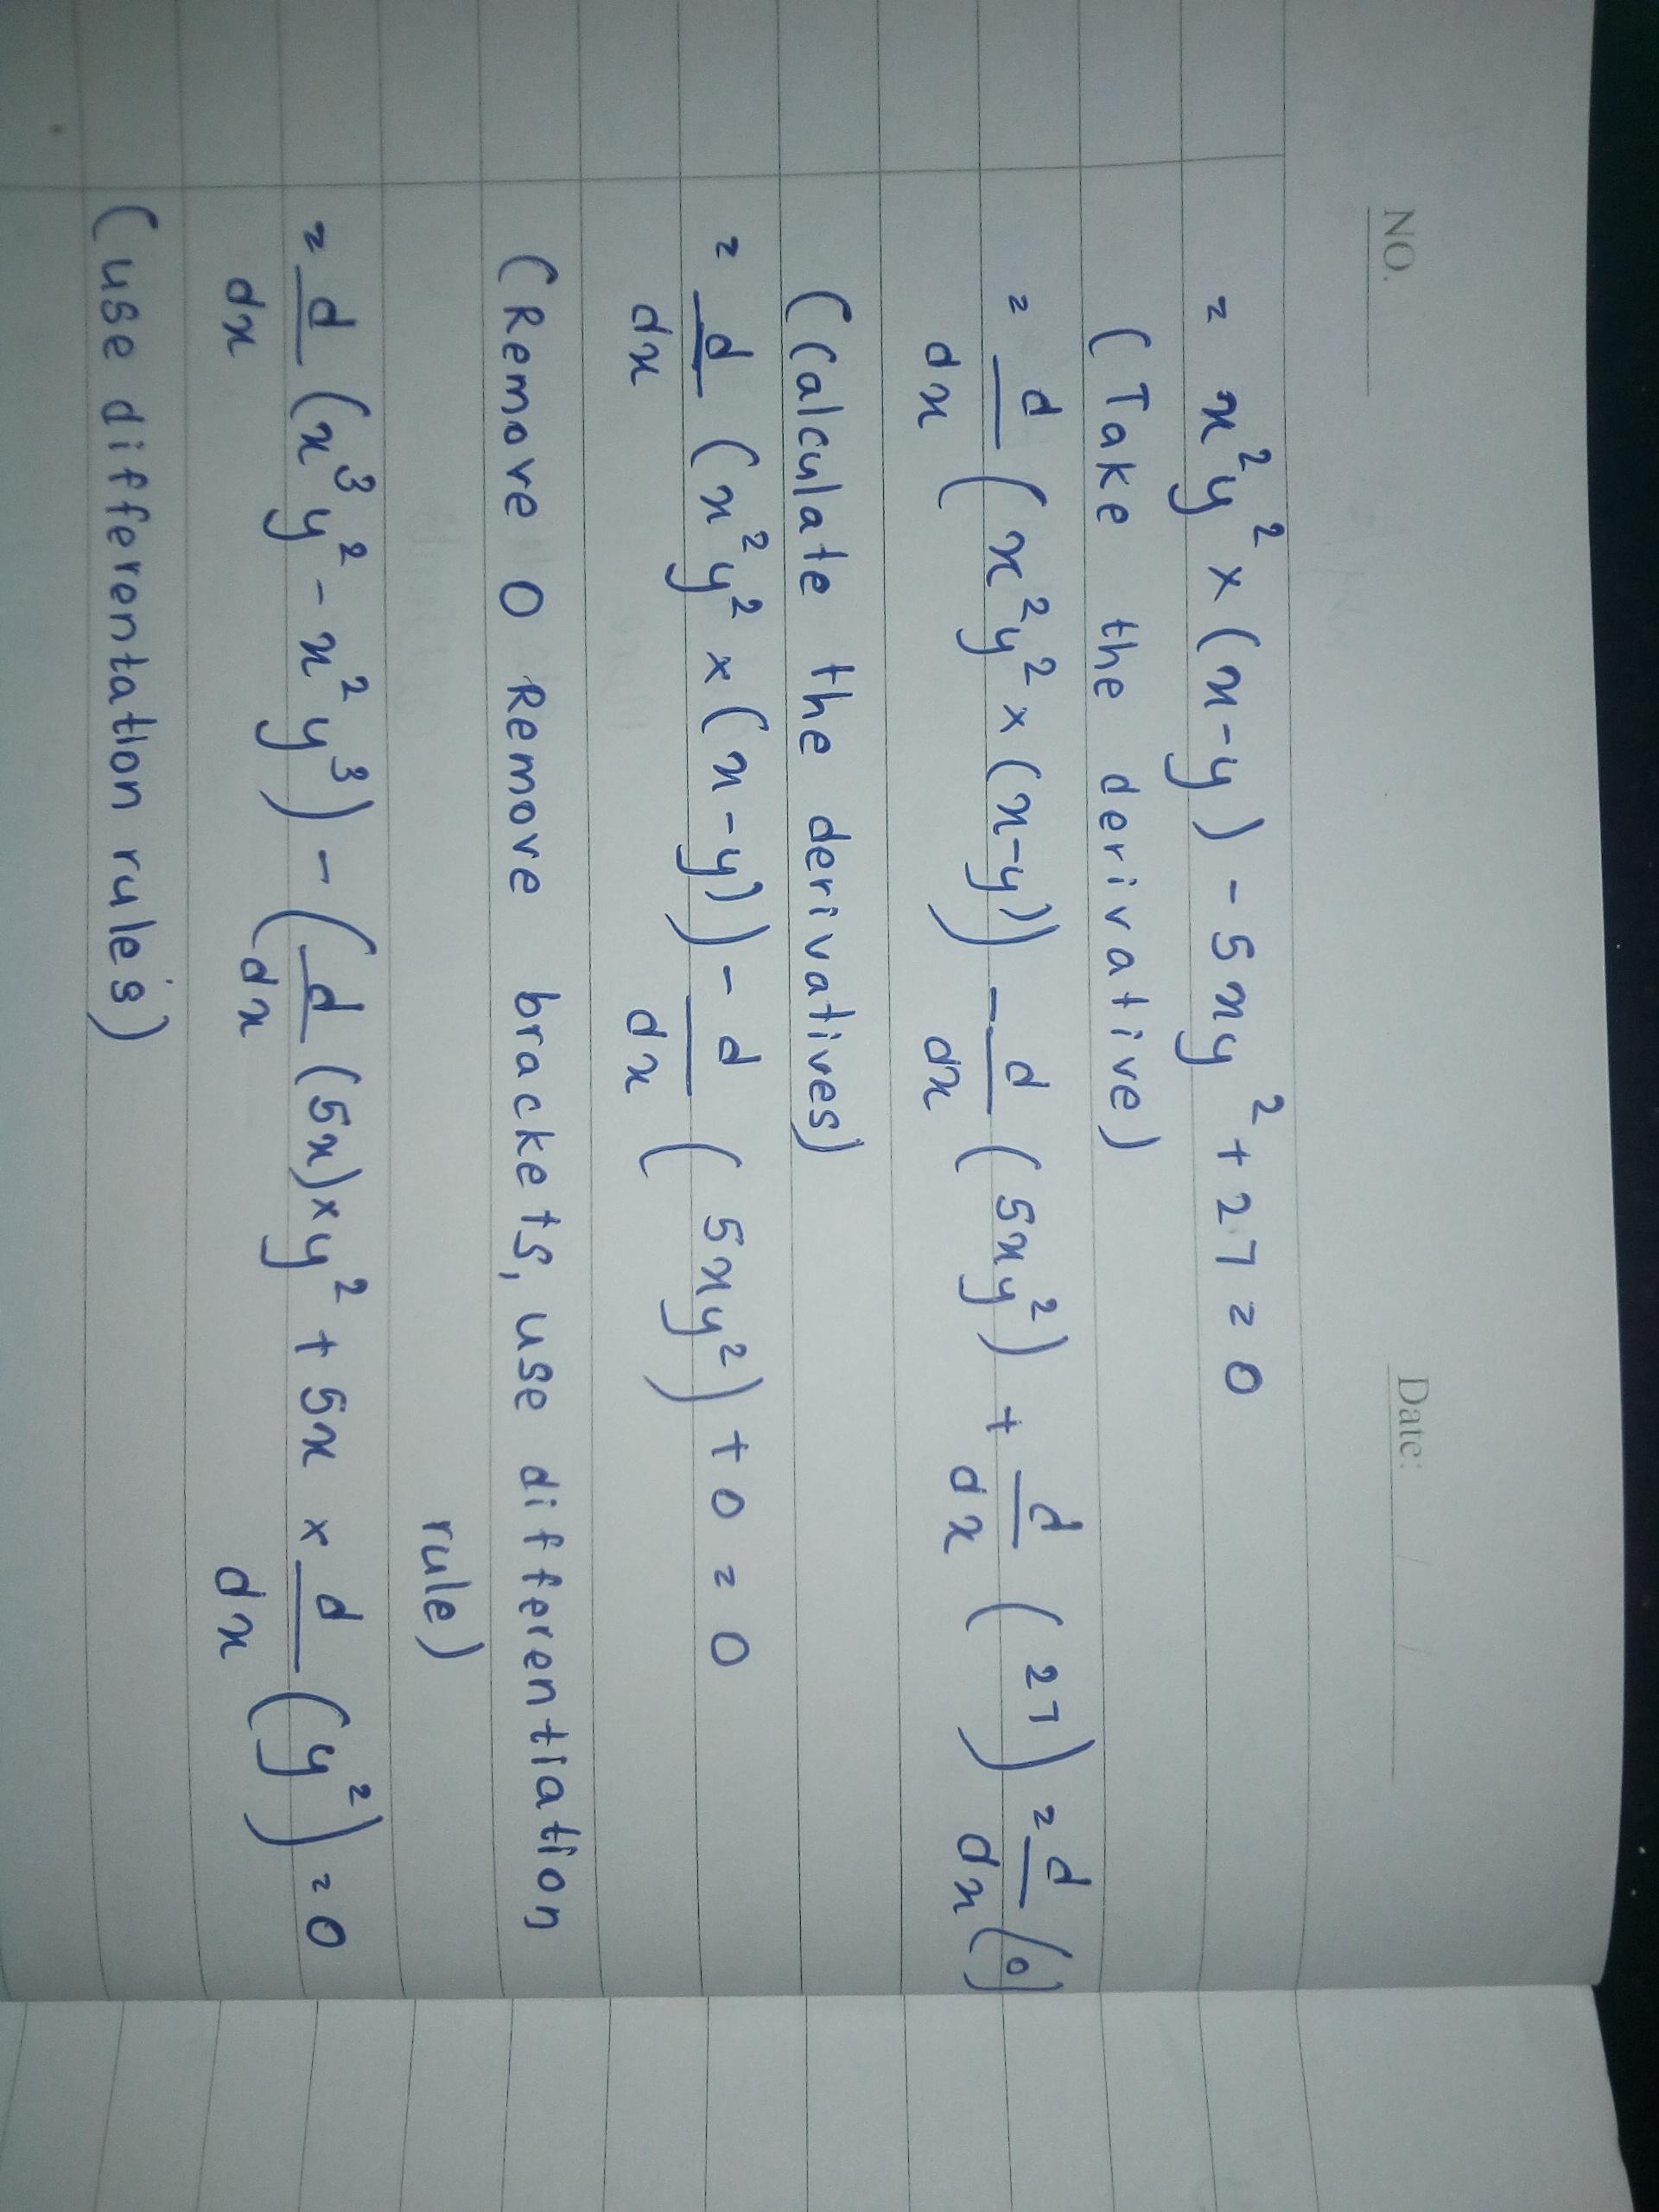 NO. Date: / /
= x²y² × (x-y) - 5xy² + 27 = 0
(Take the derivative)
= d/dx (x²y² × (x-y)) - d/dx (5xy²) + d/dx (27) = d/dx (0)
(Calculate the derivatives)
= d/dx (x²y² × (x-y)) - d/dx (5xy²) + 0 = 0
(Remove 0 Remove brackets, use differentiation
rule)
= d/dx (x³y² - x²y³) - (d/dx (5x) × y² + 5x × d/dx (y²) = 0
(use differentation rules)